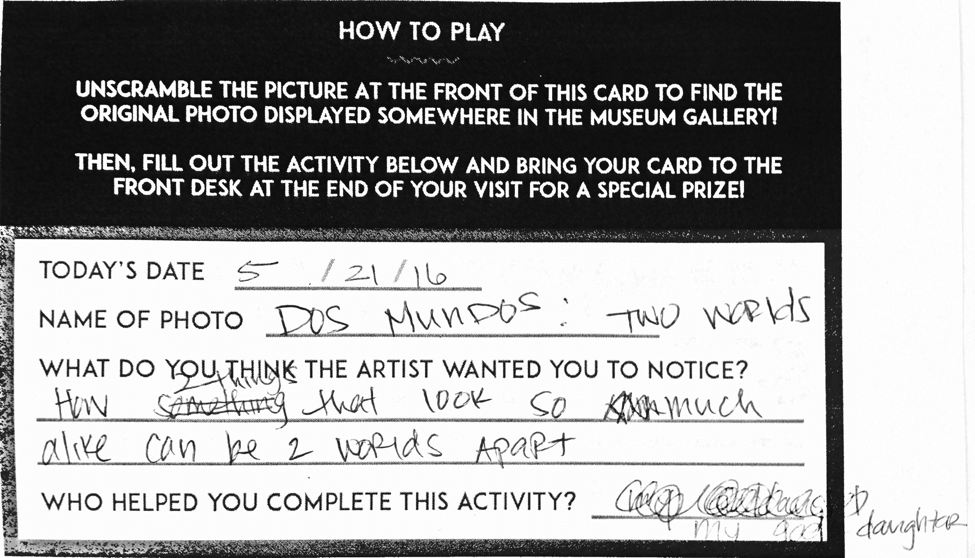 HOW TO PLAY
UNSCRAMBLE THE PICTURE AT THE FRONT OF THIS CARD TO FIND THE
ORIGINAL PHOTO DISPLAYED SOMEWHERE IN THE MUSEUM GALLERY!
THEN, FILL OUT THE ACTIVITY BELOW AND BRING YOUR CARD TO THE
FRONT DESK AT THE END OF YOUR VISIT FOR A SPECIAL PRIZE!
TODAY'S DATE 5 / 21 / 16
NAME OF PHOTO DOS MUNDOS: TWO WORLDS
WHAT DO YOU THINK THE ARTIST WANTED YOU TO NOTICE?
2 things
How something that look so much
alike can be 2 worlds apart
WHO HELPED YOU COMPLETE THIS ACTIVITY?
my daughter